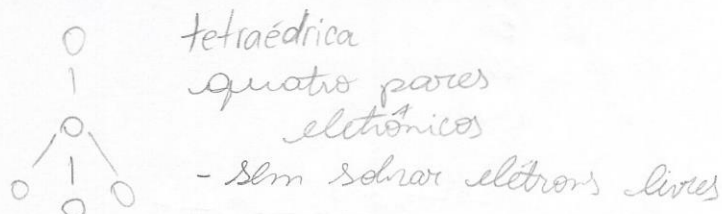 tetraédrica
quatro pares
eletrônicos
- sem sobrar elétrons livres